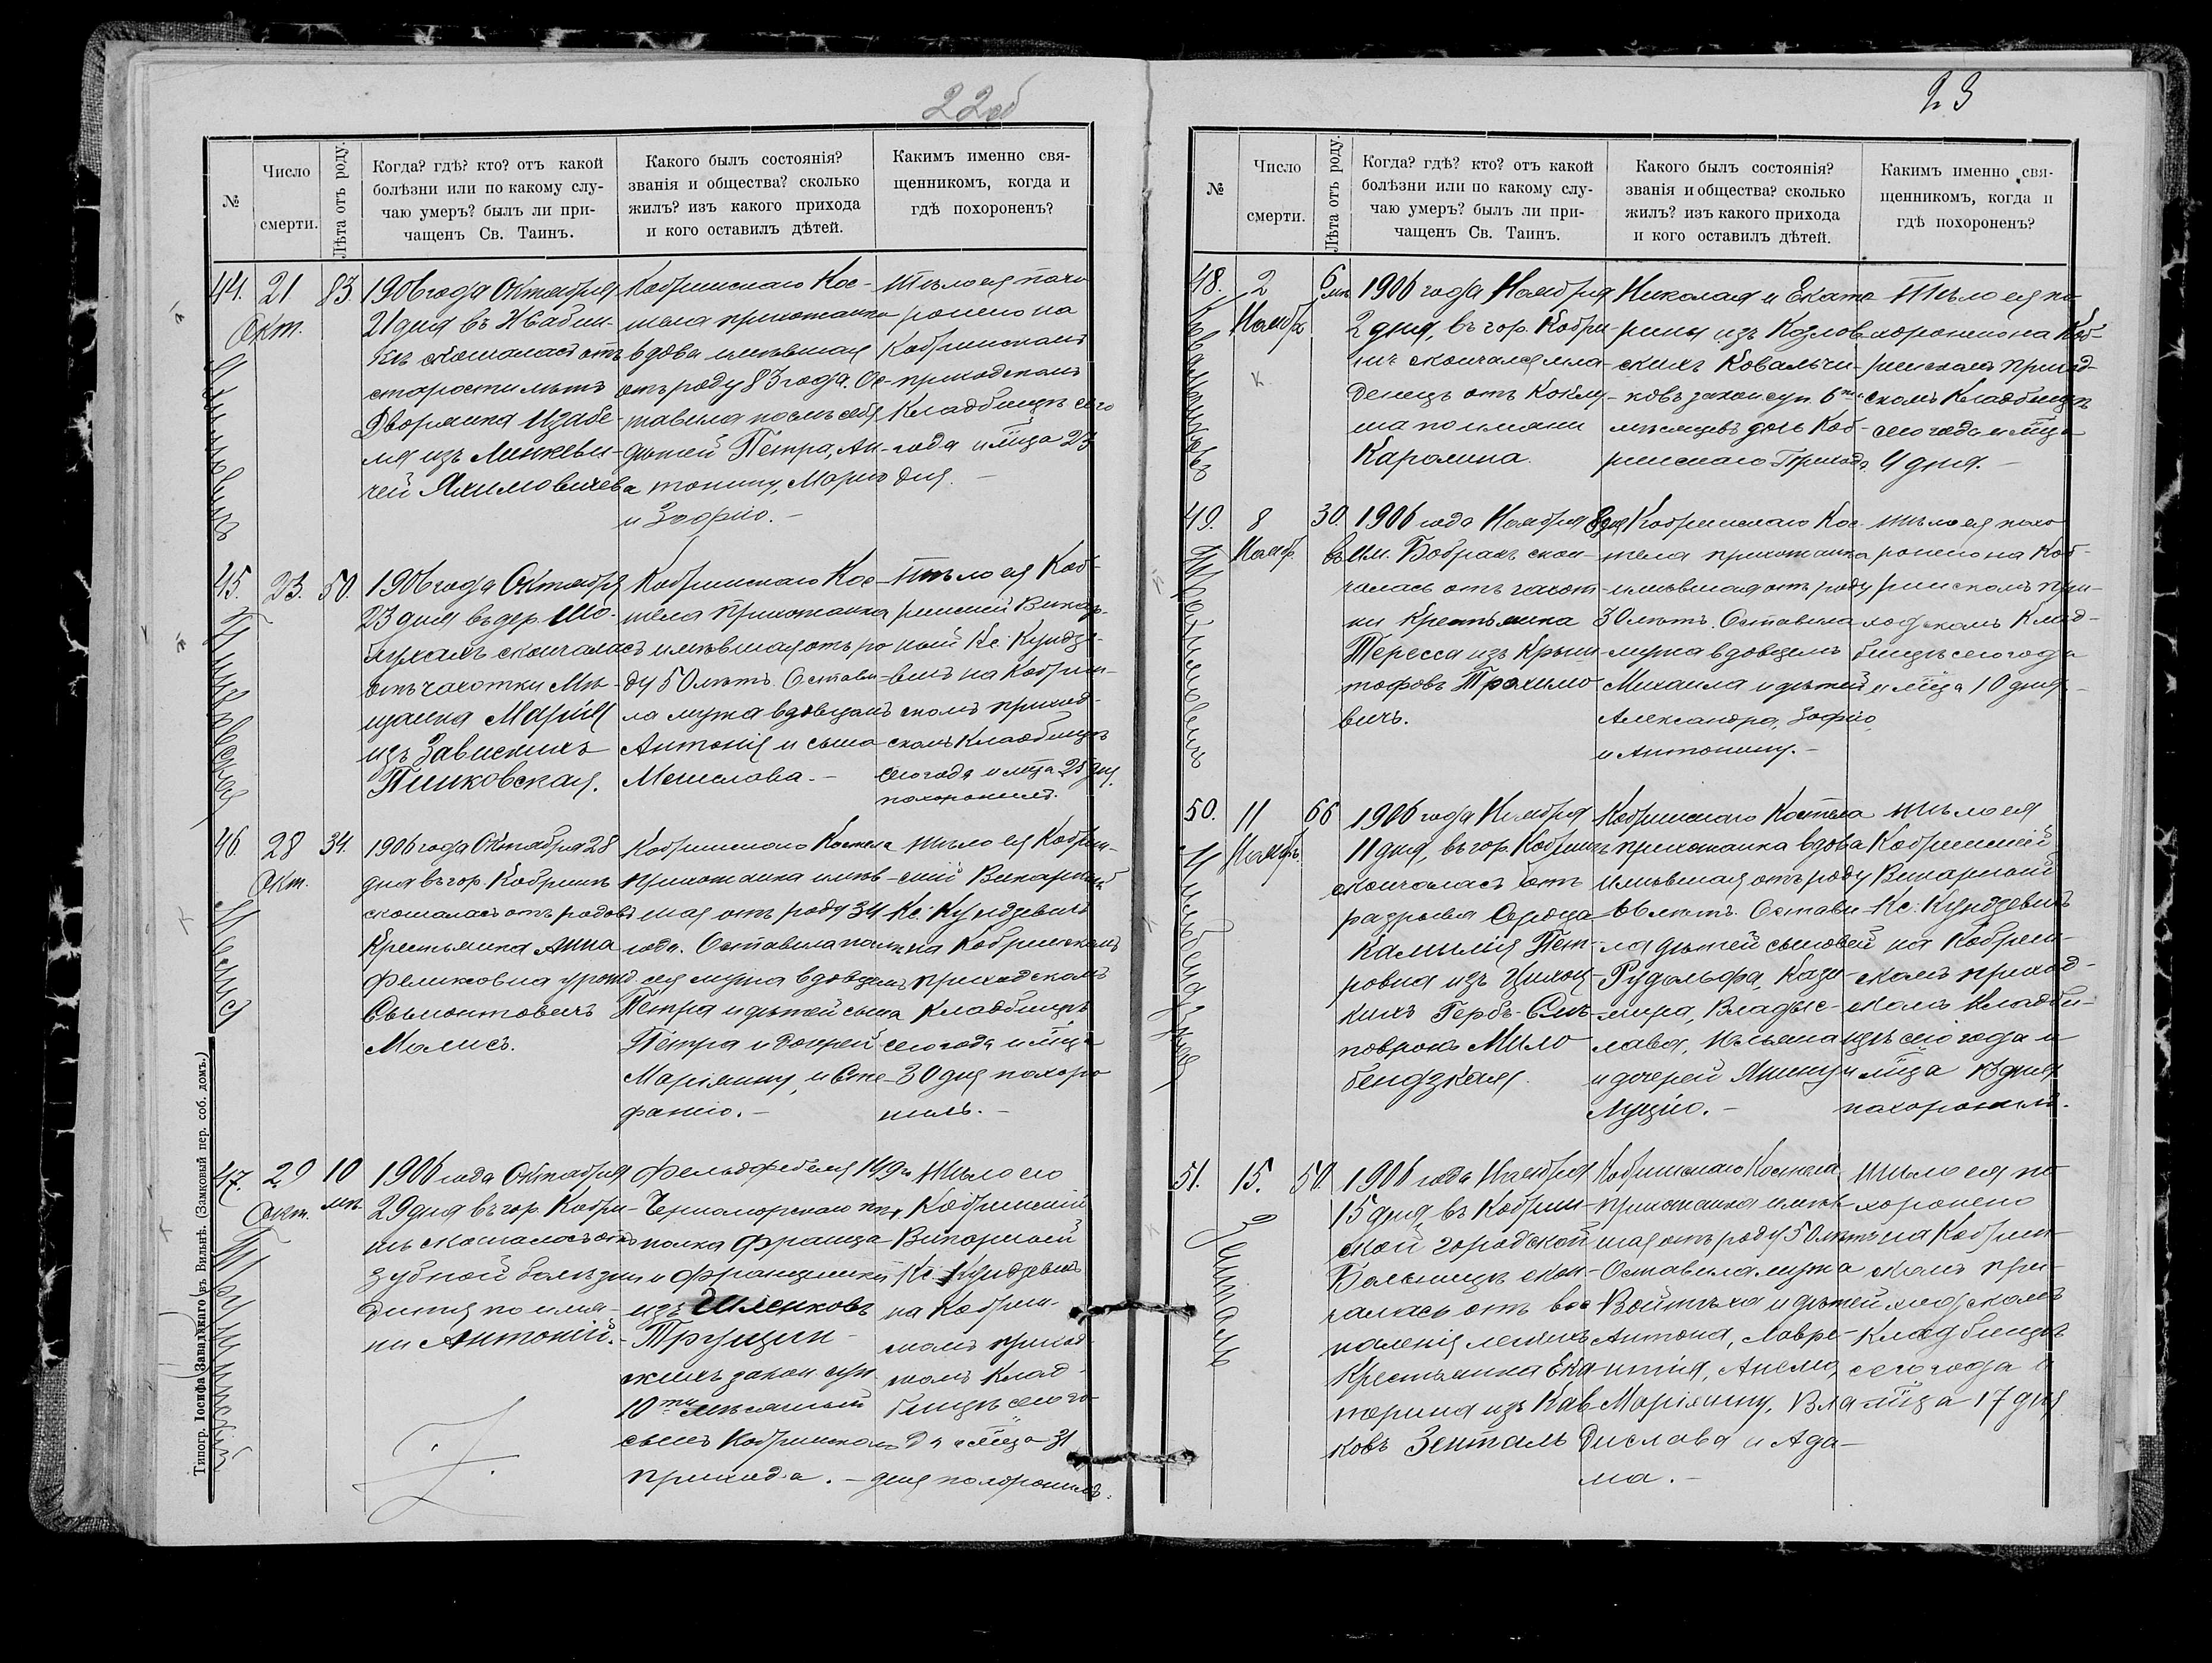 22об
№
Число
смерти.
Лѣта отъ роду.
Когда? гдѣ? кто? отъ какой
болѣзни или по какому слу-
чаю умеръ? былъ ли при-
чащенъ Св. Таинъ.
Какого былъ состоянія?
званія и общества? сколько
жилъ? изъ какого прихода
и кого оставилъ дѣтей.
Какимъ именно свя-
щенникомъ, когда и
гдѣ похороненъ?
44.
21
Окт.
83.
1906 года Октября
21 дня въ Жабин-
кѣ скончалась отъ
старости лѣтъ
Дворянка Изабе-
ля изъ Линкеви-
чей Якимовичева
Кобринскаго Кос-
тела прихожанка
вдова имѣвшая
отъ роду 83 года. Ос-
тавила послѣ себя
дѣтей Петра, Ан-
тонину, Марію
и Зофію. –
тѣло ея похо
ронено на
Кобринскомъ
приходскомъ
Кладбищѣ сего
года и м-ца 23
дня. –
45.
23.
50.
Пинковская
1906 года Октября
23 дня въ дер. Шо-
блухахъ скончалась
отъ чахотки Мѣ-
щанка Марія
изъ Завискихъ
Пинковская.
Кобринскаго Кос-
тела прихожанка
имѣвшая отъ ро
ду 50 лѣтъ. Остави-
ла мужа вдовцомъ
Антонія и сына
Мечислава. –
тѣло ея Коб-
ринскій Викар-
ный Кс. Кундзе-
вичъ на Кобрин-
скомъ приход-
скомъ Кладбищѣ
сего года и м-ца 25 дня
похоронилъ.
46.
28
Окт.
34.
Малися
1906 года Октября 28
дня въ гор. Кобринѣ
скончалась отъ родовъ
Крестьянка Анна
Феликсовна урожд
Сымонтовичъ
Малисъ.
Кобринскаго Костела
прихожанка имѣв-
шая отъ роду 34
года. Оставила послѣ
себя мужа вдовцомъ
Петра и дѣтей сына
Петра и дочерей
Маріянну, и Сте-
фанію. –
тѣло ея Кобрин-
скій Викарный
Кс: Кундзевичъ
на Кобринскомъ
приходскомъ
Кладбищѣ
сего года и м-ца
30 дня похоро
нилъ. –
47.
29
Окт.
10
мѣ.
1906 года Октября
29 дня въ гор. Кобри-
нѣ скончалось отъ
зубной болѣзни
дитя по име-
ни Антоній. –
Фельдфебеля 149го
Черноморскаго пѣх
полка Франца
и Францишки
изъ Шленковъ
Трущин-
скихъ закон суп.
10ти мѣсячный
сынъ Кобринскаго
прихода. –
тѣло его
Кобринскій
Викарный
Кс. Кундзевичъ
на Кобрин-
скомъ приход-
скомъ Клад-
бищѣ сего го-
да и м-ца 31
дня похоронилъ.
Типогр. Іосифа Завадзкаго въ Вильнѣ. (Замковый пер. соб. домъ.)
23
№
Число
смерти.
Лѣта отъ роду.
Когда? гдѣ? кто? отъ какой
болѣзни или по какому слу-
чаю умеръ? былъ ли при-
чащенъ Св. Таинъ.
Какого былъ состоянія?
званія и общества? сколько
жилъ? изъ какого прихода
и кого оставилъ дѣтей.
Какимъ именно свя-
щенникомъ, когда и
гдѣ похороненъ?
48.
2
Ноябр.
6
мѣ
1906 года Ноября
2 дня, въ гор. Кобри-
нѣ скончался мла-
денецъ отъ Коклю-
ша по имени
Каролина.
Николая и Екате
рины изъ Козлов
скихъ Ковальчи-
ковъ закон суп. 6ти
мѣсяцевъ дочь Коб-
ринскаго Прихода
тѣло ея по
хоронено на Коб-
ринскомъ приход-
скомъ Кладбищѣ
сего года и м-ца
4 дня. –
49.
8
Ноябр.
30.
1906 года Ноября 8 дня
въ им. Бобрахъ скон-
чалась отъ чахот-
ки Крестьянка
Тересса изъ Крыш-
тофовъ Трохимо
вичъ.
Кобринскаго Кос-
тела прихожанка
имѣвшая отъ роду
30 лѣтъ. Оставила
мужа вдовцемъ
Михаила и дѣтей
Александра, Зофію,
и Антонину. –
тѣло ея похо
ронено на Коб-
ринскомъ при-
ходскомъ Клад-
бищѣ сего года
и м-ца 10 дня –
50.
11
Ноябр.
66
Милобендзкая
1906 года Ноября
11 дня, въ гор. Кобринѣ
скончалась отъ
разрыва Сердца
Камилія Пет-
ровна изъ
кихъ Гербъ- Слѣ-
повронъ Мило
бендзкая.
Кобринскаго Костела
прихожанка вдова
имѣвшая отъ роду
66 лѣтъ. Остави
ла дѣтей сыновей
Рудольфа, Кази-
мира, Владис-
лава,
и дочерей Янину и
Луцію. –
тѣло ея
Кобринскій
Викарный
Кс: Кундзевичъ
на Кобрин-
скомъ приход-
скомъ Кладби-
щѣ сего года и
м-ца 13 дня
похоронилъ.
51.
15.
50.
Зенталь
1906 года Ноября
15 дня, въ Кобрин-
ской городской
Больницѣ скон-
чалась отъ вос
паленія легкихъ
Крестьянка Ека
терина изъ Кав
ковъ Зенталь
Кобринскаго Костела
прихожанка имѣв-
шая отъ роду 50 лѣтъ
Оставила мужа
Войтѣха и дѣтей
Антона, Лавре-
нтія, Анелю,
Маріянну, Вла
дислава и Ада-
ма. –
тѣло ея по
хоронено
на Кобрин-
скомъ при-
ходскомъ
Кладбищѣ
сего года и
м-ца 17 дня